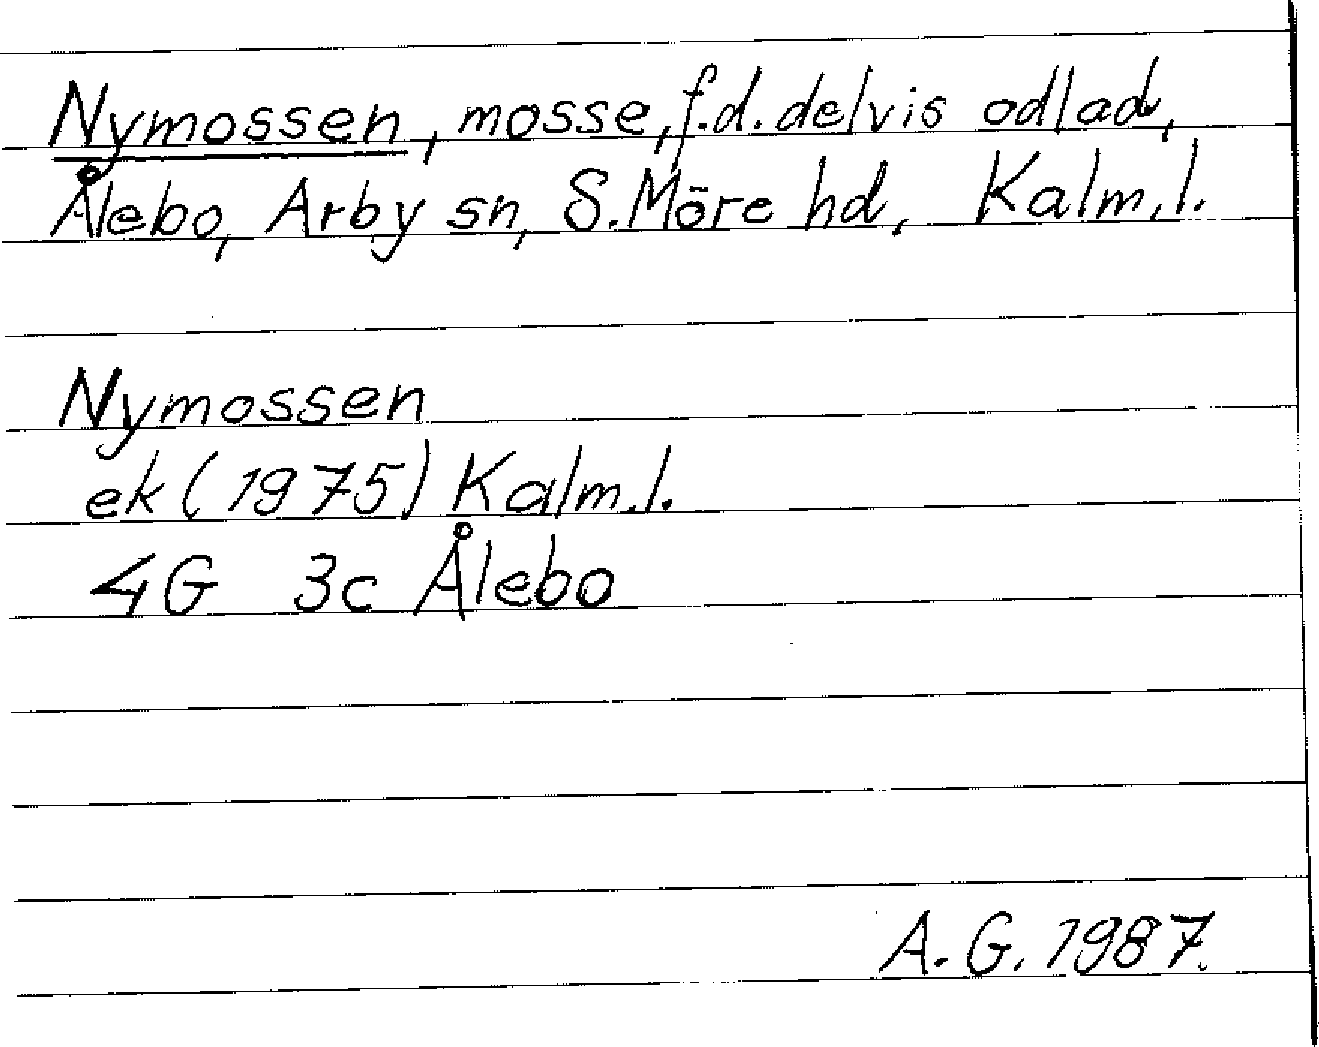 Nymossen, mosse, f.d. delvis odlad,
Ålebo, Arby sn, S. Möre hd, Kalm.l.
Nymossen
ek (1975) Kalm.l.
4G 3c Ålebo
A. G. 1987.